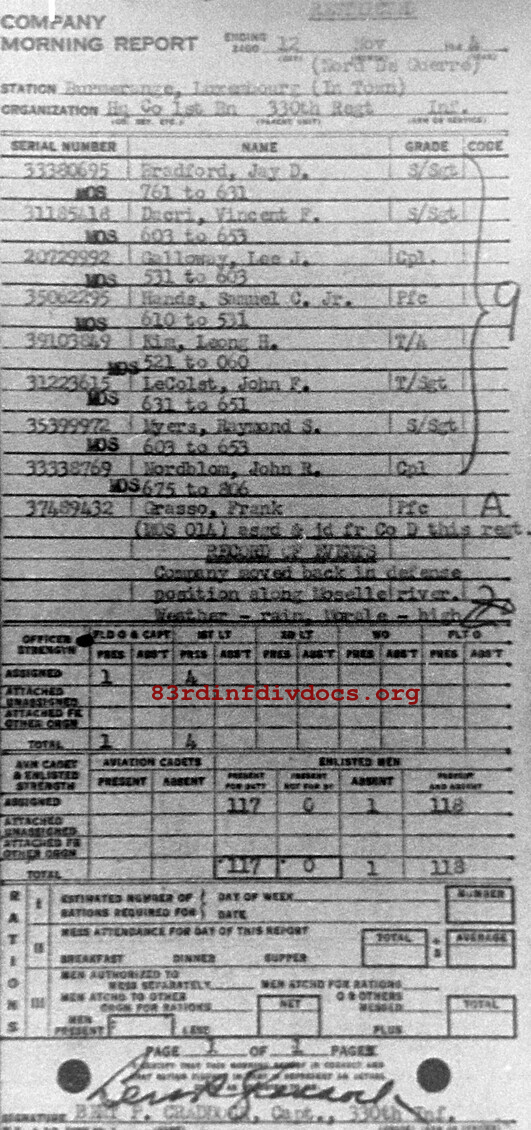 RESTRICTED
COMPANY
MORNING REPORT ENDING 2400 12 Nov 194 4
(Nord De Guerre)
STATION Burmerange, Luxembourg (In Town)
ORGANIZATION Hq Co 1st Bn 330th Regt Inf.
SERIAL NUMBER NAME GRADE CODE
33380695 Bradford, Jay D. S/Sgt
MOS 761 to 631
31185418 Dacri, Vincent F. S/Sgt
MOS 603 to 653
20729992 Galloway, Lee J. Cpl.
MOS 531 to 603
35062295 Hands, Samuel C. Jr. Pfc 9
MOS 610 to 531
39103849 Kim, Leong H. T/4
MOS 521 to 060
31223615 LeColst, John F. T/Sgt
MOS 631 to 651
35399972 Myers, Raymond S. S/Sgt
MOS 603 to 653
33338769 Nordblom, John R. Cpl
MOS 675 to 806
37489432 Grasso, Frank Pfc A
(MOS 01A) asgd & jd fr Co D this regt.
RECORD OF EVENTS
Company moved back in defense
position along Moselle river.
Weather - rain, Morale - high
OFFICER STRENGTH FLD O & CAPT 1ST LT 2D LT WO FLT O
PRES ABS'T PRES ABS'T PRES ABS'T PRES ABS'T PRES ABS'T
ASSIGNED 1 4
ATTACHED UNASSIGNED
83rdinfdivdocs.org
ATTACHED FR OTHER ORGN
TOTAL 1 4
AVN CADET & ENLISTED STRENGTH AVIATION CADETS ENLISTED MEN
PRESENT ABSENT PRESENT FOR DUTY PRESENT NOT FOR DY ABSENT PRESENT AND ABSENT
ASSIGNED 117 0 1 118
ATTACHED UNASSIGNED
ATTACHED FR OTHER ORGN
TOTAL 117 0 1 118
RATIONS
I ESTIMATED NUMBER OF RATIONS REQUIRED FOR DAY OF WEEK DATE NUMBER
II MESS ATTENDANCE FOR DAY OF THIS REPORT TOTAL ÷ 3 AVERAGE
BREAKFAST DINNER SUPPER
III MEN AUTHORIZED TO MESS SEPARATELY MEN ATCHD FOR RATIONS
MEN ATCHD TO OTHER ORGN FOR RATIONS NET O & OTHERS MESSED TOTAL
MEN PRESENT LESS PLUS
PAGE 1 OF 1 PAGES
SIGNATURE BERT P. Capt., 330th Inf.